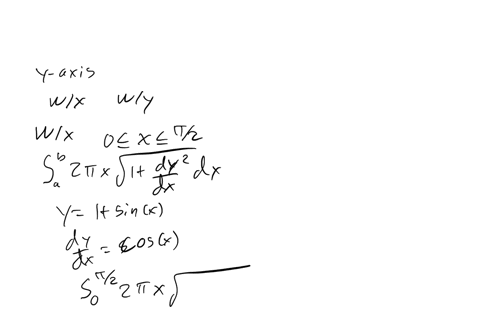 y-axis
w/x w/y
w/x 0 ≤ x ≤ π/2
∫ₐᵇ 2πx √(1+ dy/dx ²) dx
y = 1+ sin(x)
dy/dx = cos(x)
∫₀^π/2 2πx √